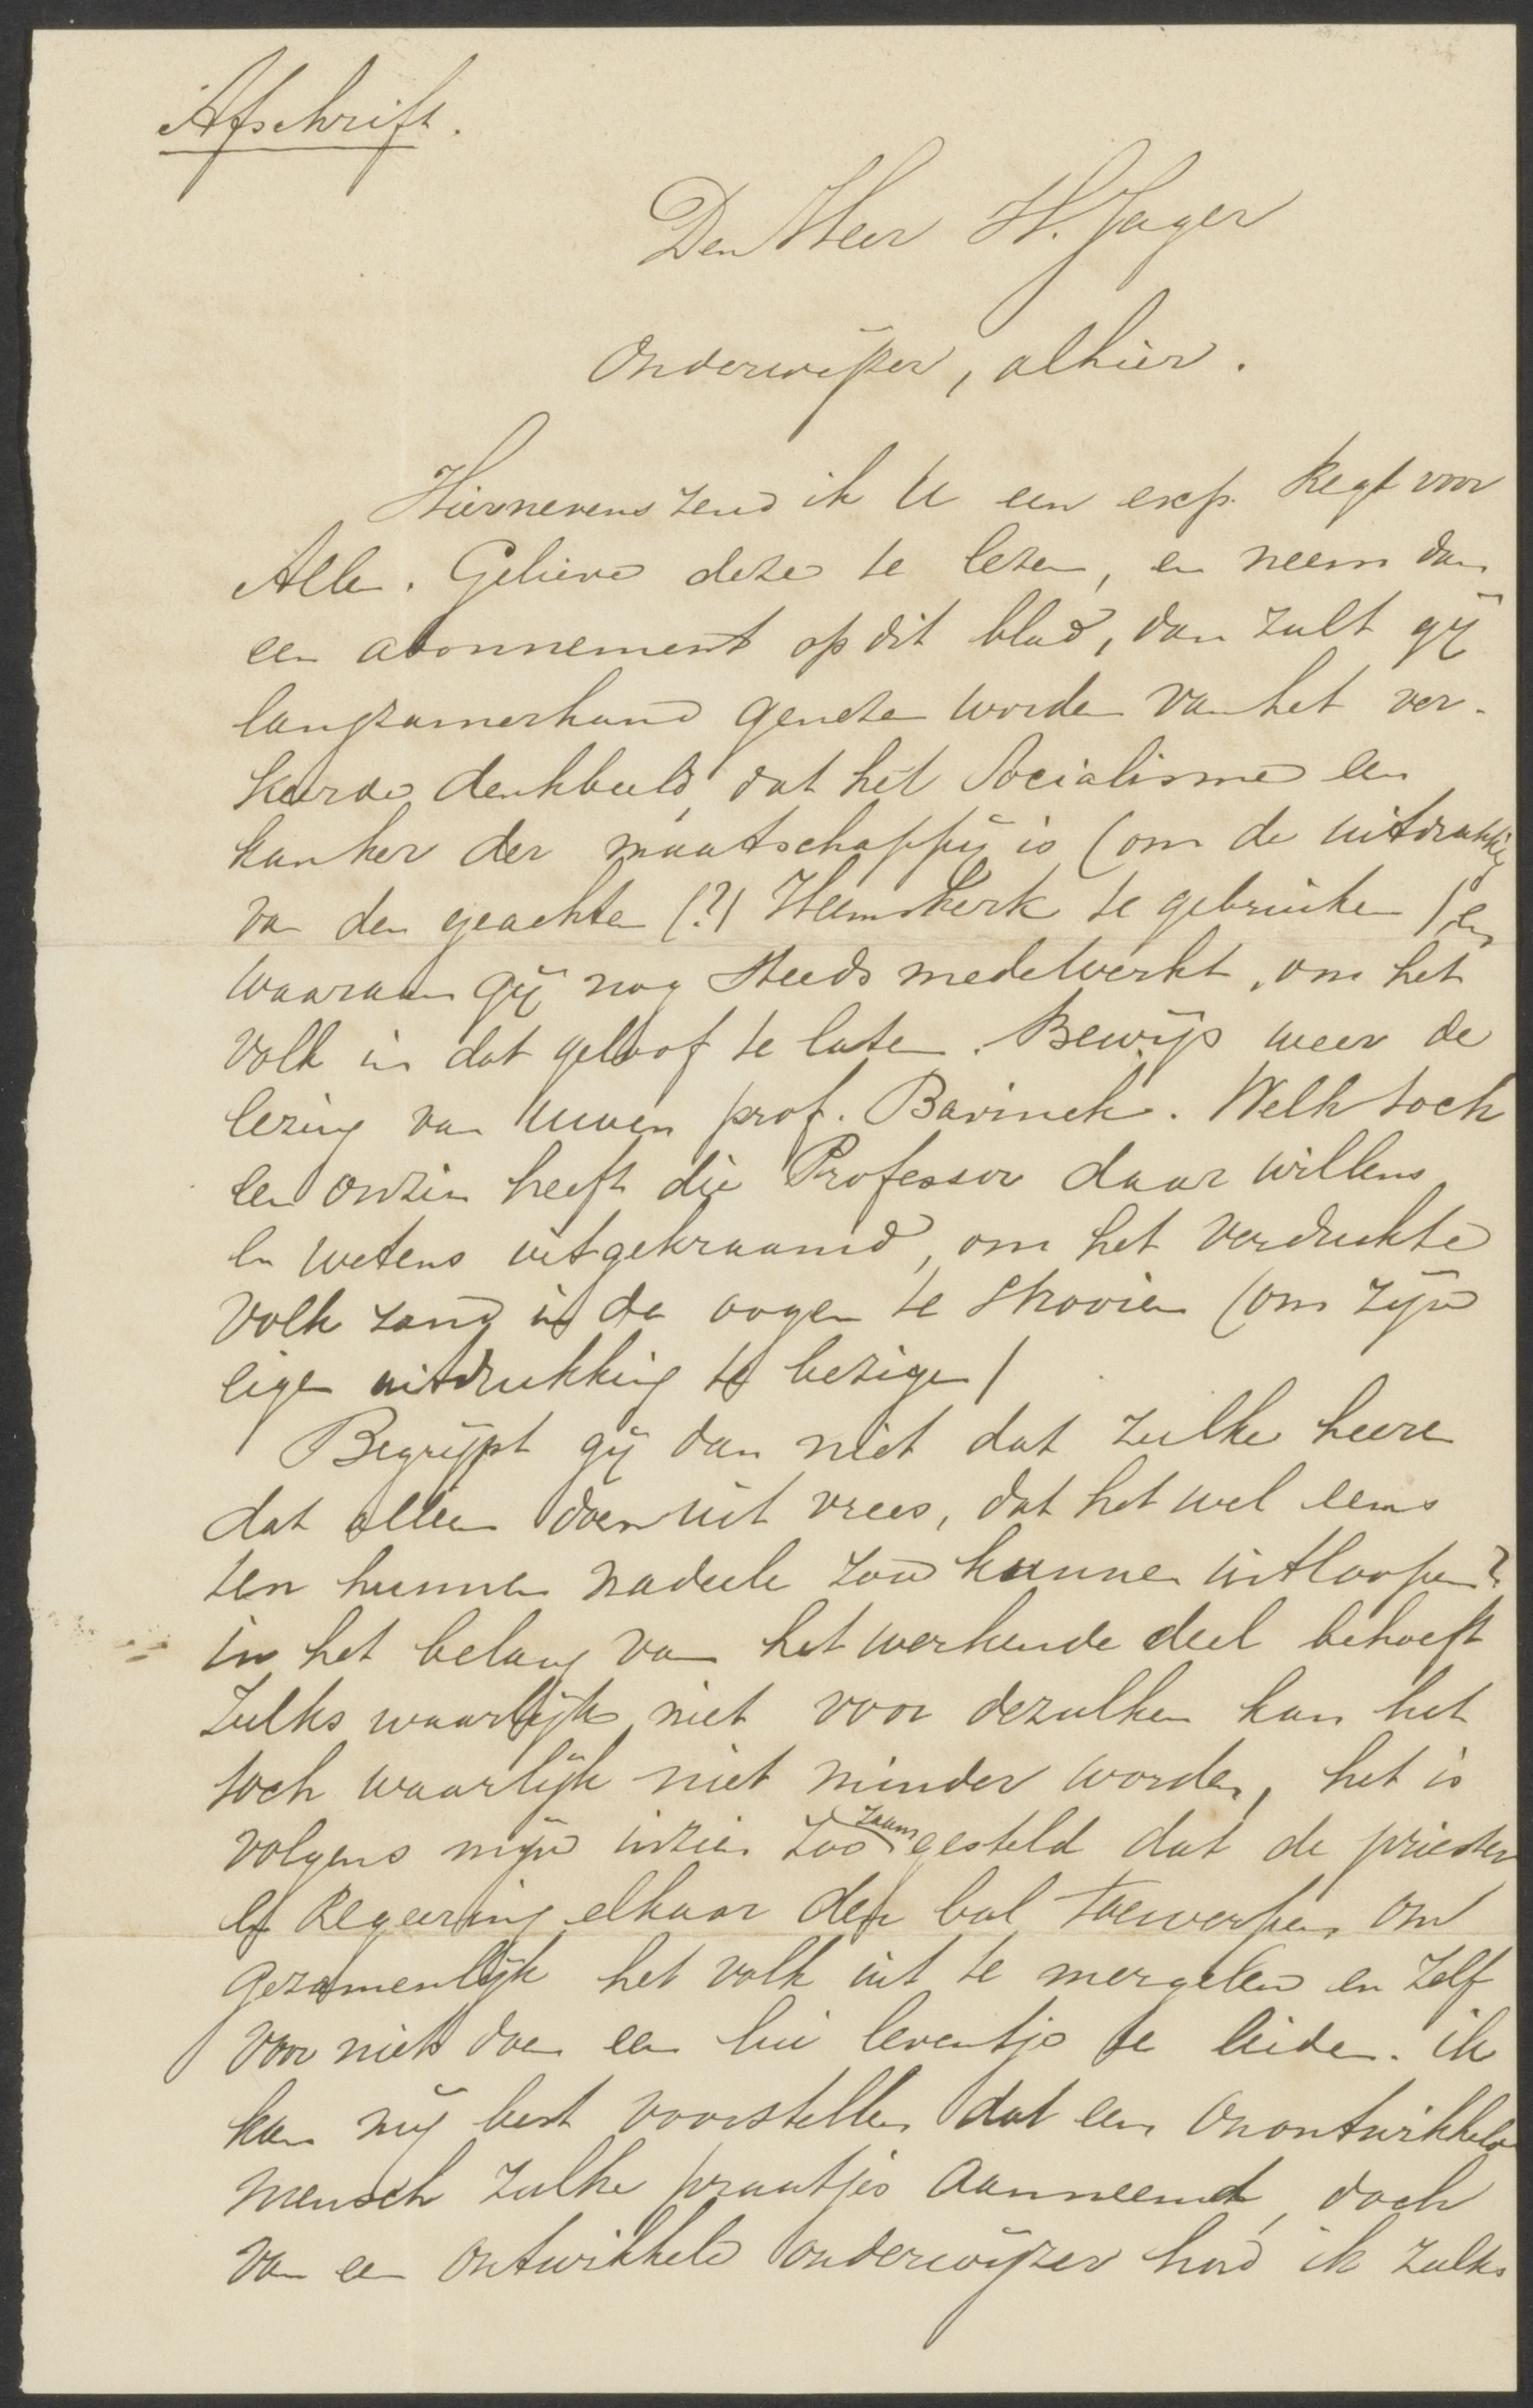 Afschrift.
Den Heer H. Jager
Onderwijzer, alhier.
Hiernevens zend ik U een exp. Regt voor
Allen. Gelieve deze te lezen, en neem dan
een abonnement op dit blad, dan zult gij
langzamerhand genezen worden van het ver-
keerde denkbeeld dat het Socialisme een
kanker der maatschappij is (om de uitdrukking
van den geachten (?) Heemskerk te gebruiken) en
waaraan gij nog steeds medewerkt, om het
volk in dat geloof te laten. Bewijs weer de
lezing van Uwen prof. Bavinck. Welk toch
een onzin heeft die Professor daar willens
en wetens uitgekraamd, om het verdrukte
volk zand in de oogen te strooien (om zijn
eigen uitdrukking te bezigen)
Begrijpt gij dan niet dat zulke heeren
dat alleen doen uit vrees, dat het wel eens
ten hunnen nadeele zou kunnen uitloopen?
in het belang van het werkende deel behoeft
zulks waarlijk niet voor dezulken kan het
toch waarlijk niet minder worden, het is
volgens mijn inzien zoo zaamgesteld dat de priesters
en Regeering elkaar den bal toewerpen om
gezamenlijk het volk uit te mergelen en zelf
voor niets doen een lui leventje te leiden. ik
kan mij best voorstellen dat een onontwikkeld
mensch zulke praatjes aanneemd, doch
van een ontwikkeld onderwijzer houd ik zulks